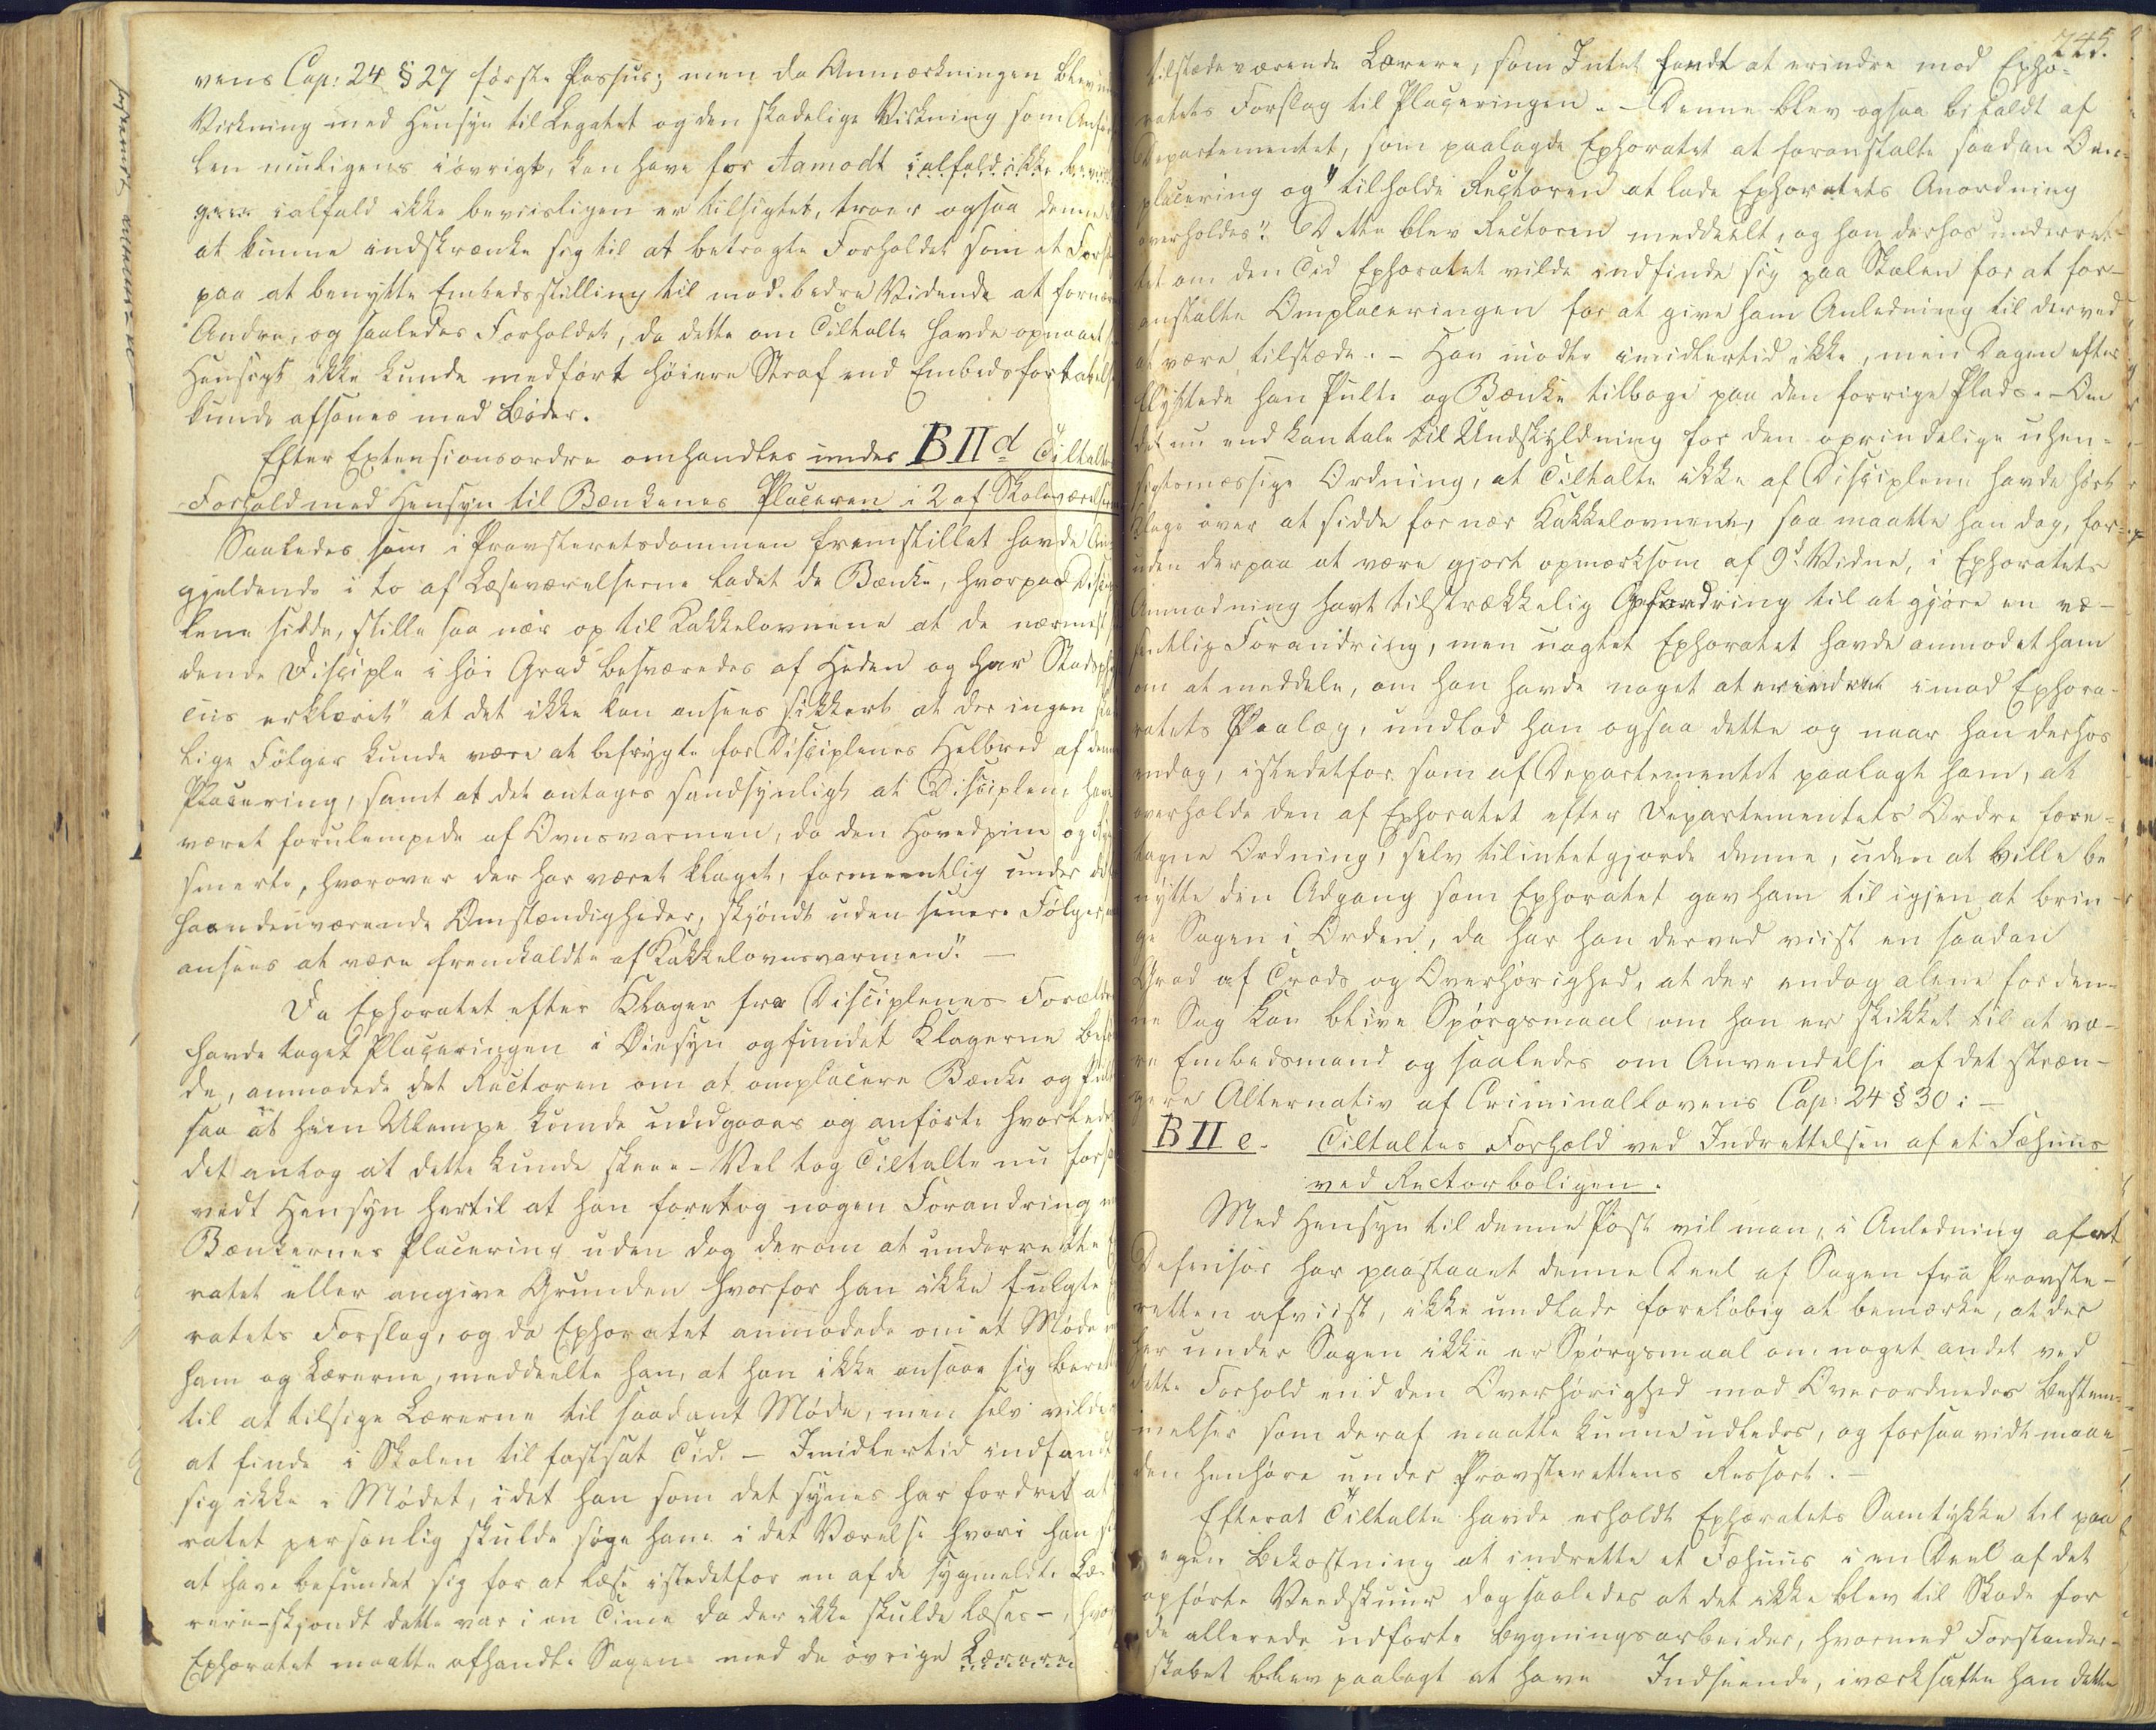 vens Cap: 24 § 27 første Passus; men da Anmærkningen blev
Virkning med Hensyn til Legatet og den skadelige Virkning som
len muligens iøvrigt, kan have for Aamodt ialfald ikke
ialfald ikke beviisligen er tilsigtet, troer ogsaa denne
at kunne indskrænke sig til at betragte Forholdet som et
paa at benytte Embedsstilling til mod bedre Vidende at
Andre, og saaledes Forholdet, da dette om Tiltalte havde opnaaet
Hensigt ikke kunde medført høiere Straf end
kunde afsones med Bøder.
Efter Extensionsordre omhandles under B II d Tiltaltes
Forhold med Hensyn til Bænkenes Placeren i 2 af
Saaledes som i Provsteretsdommen fremstillet havde
gjeldende i to af Læseværelserne ladet de Bænke, hvorpaa
lene sidde, stille saa nær op til Kakkelovnene at de
dende Disciple i høi Grad besværedes af Heden og har
cus erklæret "at det ikke kan ansees sikkert at der ingen
lige Følger kunde være at befrygte for Disciplenes Helbred af
Placering, samt at det antages sandsynligt at Disciplene
været forulempede af Ovnsvarmen, da den Hovedpine og
smerte, hvorover der har været klaget, formeentlig under
haandenværende Omstændigheder, skjøndt uden senere Følger,
ansees at være fremkaldte af Kakkelovnsvarmen". —
Da Ephoratet efter Klager fra Disciplenes
havde taget Placeringen i Øiesyn og fundet Klagerne
de, anmodede det Rectoren om at omplacere Bænke og
saa at hiin Ulempe kunde undgaaes og anførte hvorledes
det antog at dette kunde skee. - Vel tog Tiltalte nu
vidt Hensyn hertil at han foretog nogen Forandring
Bænkernes Placering uden dog derom at underrette
ratet eller angive Grunden hvorfor han ikke fulgte
ratets Forslag, og da Ephoratet anmodede om et Møde
ham og Lærerne, meddeelte han, at han ikke ansaae sig
til at tilsige Lærerne til saadant Møde, men selv vilde
at finde i Skolen til fastsat Tid. - Imidlertid indfandt
sig ikke i Mødet, idet han som det synes har fordret at
ratet personlig skulde søge ham i det Værelse hvori han
at have befundet sig for at læse istedetfor en af de sygmeldte
rere - skjøndt dette var i en Time da der ikke skulde læses -,
Ephoratet maatte afhandle Sagen med de øvrige Lærere
245.
tilstedeværende Lærere, som Intet fandt at erindre mod Epho-
ratets Forslag til Placeringen. - Denne blev ogsaa bifaldt af
Departementet, som paalagde Ephoratet at foranstalte saadan Om-
placering og "tilholde Rectoren at lade Ephoratets Anordning
overholdes". Dette blev Rectoren meddeelt, og han derhos underret-
tet om den Tid Ephoratet vilde indfinde sig paa Skolen for at for-
anstalte Omplaceringen for at give ham Anledning til derved
at være tilstede. - Han mødte imidlertid ikke, men Dagen efter
flyttede han Pulte og Bænke tilbage paa den forrige Plads. - Om
det nu end kan tale til Undskyldning for den oprindelige uhen-
sigtsmæssige Ordning, at Tiltalte ikke af Disciplene havde hørt
Klage over at sidde for nær Kakkelovnene, saa maatte han dog, for-
uden derpaa at være gjort opmærksom af 9d Vidne, i Ephoratets
Anmodning havt tilstrækkelig Opfordring til at gjøre en væ-
sentlig Forandring, men uagtet Ephoratet havde anmodet ham
om at meddele, om han havde noget at erindre imod Ephora-
ratets Paalæg, undlod han ogsaa dette og naar han derhos
endog, istedetfor som af Departementet paalagt ham, at
overholde den af Ephoratet efter Departementets Ordre fore-
tagne Ordning, selv tilintetgjorde denne, uden at ville be
nytte den Adgang som Ephoratet gav ham til igjen at brin-
ge Sagen i Orden, da har han derved viist en saadan
Grad af Trods og Overhørighed, at der endog alene for den-
ne Sag kan blive Spørgsmaal om han er skikket til at væ-
re Embedsmand og saaledes om Anvendelse af det stræn-
gere Alternativ af Criminallovens Cap: 24 § 30: -
B II e. Tiltaltes Forhold ved Indrettelsen af et Fæhuus
ved Rectorboligen.
Med Hensyn til denne Post vil man, i Anledning af at
Defensor har paastaaet denne Deel af Sagen fra Provste-
retten afviist, ikke undlade foreløbig at bemærke, at der
her under Sagen ikke er Spørgsmaal om noget andet ved
dette Forhold end den Overhørighed mod Overordnedes Bestem-
melser som deraf maatte kunne udledes, og forsaavidt maae
den henhøre under Provsterettens Ressort. -
Efterat Tiltalte havde erholdt Ephoratets Samtykke til paa
egen Bekostning at indrette et Fæhuus i en Deel af det
opførte Vedskuur dog saaledes at det ikke blev til Skade for
de allerede udførte Bygningsarbeider, hvormed Forstander-
skabet blev paalagt at have Indseende, iværksatte han dette